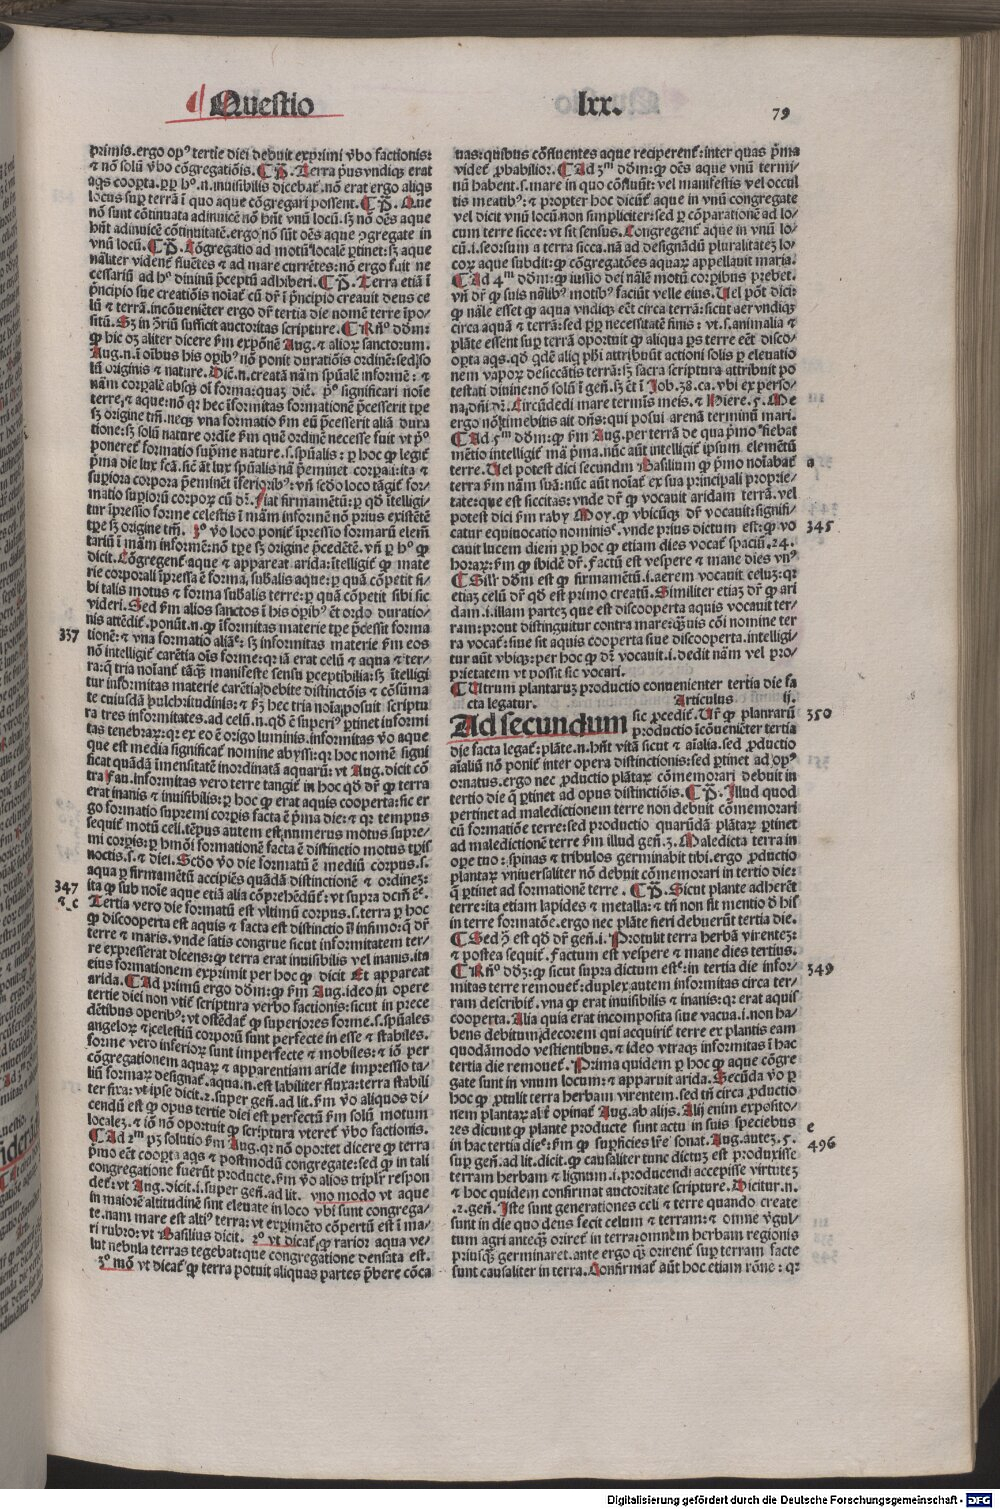 Questio
lxx.
79
primis. ergo opꝰ tertie diei debuit exprimi ṽbo factionis:
⁊ nō solū ṽbo cōgregatiōis. ¶ P̄. Terra pͥus vndiqꝫ erat
aqs coopta. ꝓp hͦ.n. inuisibilis dicebat̄. nō erat ergo aliqͥs
locus suꝑ terrā ī quo aque cōgregari possent. ¶ P̄. Que
nō sunt cōtinuata adinuicē nō hn̄t vnū locū. sꝫ nō oēs aque
hn̄t adinuicē cōtinuitatē. ergo nō sūt oēs aque ꝯgregate in
vnū locū. ¶ P̄. Cōgregatio ad motū localē ꝑtinet: sꝫ aque
nāliter vident̄ fluētes ⁊ ad mare currētes: nō ergo fuit ne
cessariū ad hͦ diuinū p̄ceptū adhiberi. ¶ P̄. Terra etiā ī
pͥncipio sue creatiōis noīat̄ cū dr̄ ī pͥncipio creauit deus ce
lū ⁊ terrā. incōueniēter ergo dr̄ tertia die nomē terre īpo/
sitū. Sꝫ in ꝯ̄riū sufficit auctoritas scripture. ¶ Rn̄ͦ dōm:
ꝙ hic oꝫ aliter dicere ẜm expōnē Aug. ⁊ alioꝝ sanctorum.
Aug.n. ī oībus his oꝑibꝰ nō ponit durationis ordinē: sed so
lū originis ⁊ nature. Dic̄.n. creatā nām spūalē informē: ⁊
nām corpalē absqꝫ oī forma: quaꝫ dic̄. pͦ significari noīe
terre, ⁊ aque: nō qꝛ hec īformitas formationē p̄cesserit tꝑe
sꝫ origine tm̄. neqꝫ vna formatio ẜm eū p̄cesserit aliā dura
tione: sꝫ solū nature ordīe ẜm quē ordinē necesse fuit vt pͦ
poneret̄ formatio supͥme nature .s. spūalis: ꝑ hoc ꝙ legit̄
pͥma die lux fcā. sic̄ āt lux spūalis nā p̄eminet corpaͣli: ita ⁊
supiora corpora p̄eminēt īferioribꝰ: vn̄ sedo loco tāgit̄ for-
matio supioꝝ corpoꝝ cū dr̄. fiat firmamētū: ꝑ qd̄ īntelligi-
tur īpressio forme celestis ī mām informē nō prius existētē
tꝑe sꝫ origine tm̄. 3ͦ ṽo loco ponit̄ īpressio formaꝝ elem̄
tariū ī mām informē: nō tꝑe sꝫ origine p̄cedētē. vn̄ ꝑ hͦ ꝙ
dicit. Cōgregent̄ aque ⁊ appareat arida: ītelligit̄ ꝙ mate
rie corporali īpressa ē forma, sub̄alis aque: ꝑ quā cōpetit si-
bi talis motus ⁊ forma sub̄alis terre: ꝑ quā cōpetit sibi sic
videri. Sed ẜm alios sanctos ī his opibꝰ ēt ordo duratio-
nis attēdit̄. ponūt.n. ꝙ īformitas materie tꝑe p̄cessit forma
337
tionē: ⁊ vna formatio aliāͤ: sꝫ informitas materie ẜm eos
nō intelligit̄ carētia oīs forme: qꝛ iā erat celū ⁊ aqua ⁊ ter-
ra: q̄ tria noīant̄ tāqꝫ manifeste sensu pceptibilia: sꝫ ītelligi
tur informitas materie carētia debite distinctōis ⁊ cōsūma
te cuiusdā pulchritudinis: ⁊ ẜꝫ hec tria noīa posuit scriptu
ra tres informitates. ad celū.n. qd̄ ē superiꝰ ꝑtinet informi
tas tenebraꝝ: qꝛ ex eo ē origo luminis. informitas ṽo aque
que est media significat̄ nomine abyssi: qꝛ hoc nomē signi
ficat quādā imensitatē inordinatā aquarū: vt Aug. dicit cō
tra fau. informitas vero terre tangit̄ in hoc qd̄ dr̄ ꝙ terra
erat inanis ⁊ inuisibilis: ꝑ hoc ꝙ erat aquis cooperta: sic er
go formatio supremi corpis facta ē pͥma die: ⁊ qꝛ tempus
sequit̄ motū celi. tēpus autem est numerus motus supre-
mi corpis: ꝑ hmōi formationē facta ē distinctio motus tꝑis
noctis .s. ⁊ diei. Scd̄o ṽo die formatū ē mediū corpus .s.
aqua ꝑ firmamētū accipiēs quādā distinctionē ⁊ ordineꝫ:
347
ita ꝙ sub noīe aque etiā alia cōprehēdūt̄: vt supra dcm̄ ēͤ.
⁊ c
Tertia vero die formatū est vltimū corpus .s. terra ꝑ hoc
ꝙ discooperta est aquis ⁊ facta est distinctio ī infimo: q̄ dr̄
terre ⁊ maris. vnde satis congrue sicut informitatem ter-
re expresserat dicens: ꝙ terra erat inuisibilis vel inanis. ita
eius formationem exprimit per hoc ꝙ dicit Et appareat
arida. ¶ Ad primū ergo dōm: ꝙ ẜm Aug. ideo in opere
tertie diei non vtit̄ scriptura verbo factionis: sicut in prece
dētibus operibꝰ: vt ostēdat̄ ꝙ superiores forme .s. spūales
angeloꝝ ⁊ celestiū corporū sunt perfecte in esse ⁊ stabiles.
forme vero inferioꝝ sunt imperfecte ⁊ mobiles: ⁊ iō per
cōgregationem aquaꝝ ⁊ apparentiam aride impressio ta-
liū formaꝝ designat̄. aqua.n. est labiliter fluxa: terra stabili
ter fixa: vt ipse dicit.2. super gen̄. ad lit. ẜm ṽo aliquos di-
cendū est ꝙ opus tertie diei est perfectū ẜm solū motum
localeꝫ. ⁊ iō nō oportuit ꝙ scriptura vteret̄ ṽbo factionis.
¶ Ad 2ᵐ pꝫ solutio ẜm Aug. qꝛ nō oportet dicere ꝙ terra
pͥmo eēt coopta aqs ⁊ postmodū congregate: sed ꝙ in tali
congregatione fuerūt producte. ẜm ṽo alios triplr̄ respon
det̄: vt Aug. dicit.i. super gen̄. ad lit. vno modo vt aque
in maiorē altitudinē sint eleuate in loco vbi sunt congrega-
te. nam mare est altiꝰ terra: vt expimēto cōpertū est ī ma-
ri rubro: vt Basilius dicit. 2ͦ vt dicat̄ ꝙ rarior aqua ve-
lut nebula terras tegebat: que congregatione densata est.
3ͦ mō vt dicat̄ ꝙ terra potuit aliquas partes p̄bere cōca
uas: quibus cōfluentes aque reciperent̄: inter quas pͥma
videt̄ ꝓbabilior. ¶ Ad 3ᵐ dōm: ꝙ oēs aque vnū termi-
nū habent .s. mare in quo cōfluūt: vel manifestis vel occul
tis meatibꝰ: ⁊ propter hoc dicūt̄ aque in vnū congregate
vel dicit vnū locū non simpliciter: sed ꝑ cōparationē ad lo-
cum terre sicce: vt sit sensus. Congregent̄ aque in vnū lo-
cū .i. seorsum a terra sicca. nā ad designādū pluralitateꝫ lo-
coꝝ aque subdit: ꝙ cōgregatōes aquaꝝ appellauit maria.
¶ Ad 4ᵐ dōm: ꝙ iussio dei nālē motū corpibus prebet.
vn̄ dr̄ ꝙ suis nālibꝰ motibꝰ faciūt velle eius. Uel pōt dici:
ꝙ nāle esset ꝙ aqua vndiqꝫ eēt circa terrā: sicut aer vndiqꝫ
circa aquā ⁊ terrā: sed ꝓp necessitatē finis: vt .s. animalia ⁊
plāte essent suꝑ terrā oportuit ꝙ aliqua ps terre eēt disco-
opta aqs. qd̄ qdē aliq phī attribuūt actioni solis ꝑ eleuatio
nem vapoꝝ desiccātis terrā: sꝫ sacra scriptura attribuit po
testati diuine: nō solū ī gen̄. sꝫ ēt ī Job.38. ca. vbi ex perso-
na dn̄i dꝛ. Circūdedi mare terminis meis. ⁊ Hiere.5. Me
ergo nō timebitis ait dn̄s: qui posui arenā terminū mari.
¶ Ad 5ᵐ dōm: ꝙ ẜm Aug. per terrā de qua pͥmo fiebat
mētio intelligit̄ mā pͥma. nūc aūt intelligit̄ ipsum elemētū
terre. Uel potest dici secundm̄ Basilium ꝙ pͥmo noīabat̄
a
terra ẜm nām suā: nūc aūt noīat̄ ex sua principali proprie-
tate: que est siccitas: vnde dr̄ ꝙ vocauit aridam terrā. vel
potest dici ẜm raby Moy. ꝙ vbicūqꝫ dr̄ vocauit: signifi-
catur equiuocatio nominisͤ. vnde prius dictum est: ꝙ vo
345
cauit lucem diem ꝓp hoc ꝙ etiam dies vocat̄ spaciū .24.
horaꝝ: ẜm ꝙ ibidē dr̄. factū est vespere ⁊ mane dies vnꝰ
¶ Sil̄r dōm est ꝙ firmamētū .i. aerem vocauit celuꝫ: qꝛ
etiaꝫ celū dr̄ qd̄ est primo creatū. Similiter etiaꝫ dr̄ ꝙ ari
dam .i. illam partez que est discooperta aquis vocauit ter-
ram: prout distinguitur contra mare: qͣuis cōi nomine ter
ra vocat̄: siue sit aquis cooperta siue discooperta. intelligi/
tur aūt vbiqꝫ: per hoc ꝙ dr̄ vocauit .i. dedit nām vel pro-
prietatem vt possit sic vocari.
¶ Utrum plantaruꝫ productio conuenienter tertia die fa
cta legatur. Articulus ij.
Ad secundum sic ꝓcedit̄. Ur̄ ꝙ plantarū
350
productio īcōueniēter tertia
die facta legat̄: plāte.n. hn̄t vitā sicut ⁊ aīalia. sed ꝓductio
aīaliū nō ponit̄ inter opera distinctionis: sed ꝑtinet ad opꝰ
ornatus. ergo nec ꝓductio plātaꝝ cōmemorari debuit in
tertio die q̄ ꝑtinet ad opus distinctiōis. ¶ P̄. Illud quod
pertinet ad maledictionem terre non debuit cōmemorari
cū formatiōe terre: sed productio quarūdā plātaꝝ ꝑtinet
ad maledictionē terre ẜm illud gen̄.3. Maledicta terra in
ope tuo: spinas ⁊ tribulos germinabit tibi. ergo ꝓductio
plantaꝝ vniuersaliter nō debuit cōmemorari in tertio die:
q̄ ꝑtinet ad formationē terre. ¶ P̄. Sicut plante adherēt
terre: ita etiam lapides ⁊ metalla: ⁊ tn̄ non fit mentio d̄ his
in terre formatōe. ergo nec plāte fieri debuerūt tertia die.
¶ Sed ꝯ̄ est qd̄ dr̄ gen̄.i. Protulit terra herbā virenteꝫ:
⁊ postea sequit̄. Factum est vespere ⁊ mane dies tertius.
¶ Rn̄ͦ dōꝫ: ꝙ sicut supra dictum estͤ: in tertia die infor/
349
mitas terre remouet̄: duplex autem informitas circa ter-
ram describit̄. vna ꝙ erat inuisibilis ⁊ inanis: qꝛ erat aquis
cooperta. Alia quia erat incomposita siue vacua .i. non ha-
bens debitum decorem qui acquirit̄ terre ex plantis eam
quodāmodo vestientibus. ⁊ ideo vtraqꝫ informitas ī hac
tertia die remouet̄. Prima quidem ꝑ hoc ꝙ aque cōgre
gate sunt in vnum locum: ⁊ apparuit arida. Secūda ṽo ꝑ
hoc ꝙ ꝓtulit terra herbam virentem. sed tn̄ circa ꝓductio
nem plantaꝝ al̄r opinat̄ Aug. ab alijs. Alij enim exposito-
res dicunt ꝙ plante producte sunt actu in suis speciebus
e
in hac tertia dieͤ: ẜm ꝙ supficies lr̄e sonat. Aug. autez .5.
496
sup gen̄. ad lit. dicit. ꝙ causaliter tunc dictuꝫ est produxisse
terram herbam ⁊ lignum .i. producendi accepisse virtutez
⁊ hoc quidem confirmat auctoritate scripture. Dicitur.n.
.2. gen̄. Iste sunt generationes celi ⁊ terre quando create
sunt in die quo deus fecit celum ⁊ terram: ⁊ omne ṽgul-
tum agri anteqꝫ oriret̄ in terra: omnem herbam regionis
priusqꝫ germinaret. ante ergo qꝫ orirent̄ sup terram facte
sunt causaliter in terra. Confirmat̄ aūt hoc etiam rōne: qꝛ
Digitalisierung gefördert durch die Deutsche Forschungsgemeinschaft - DFG